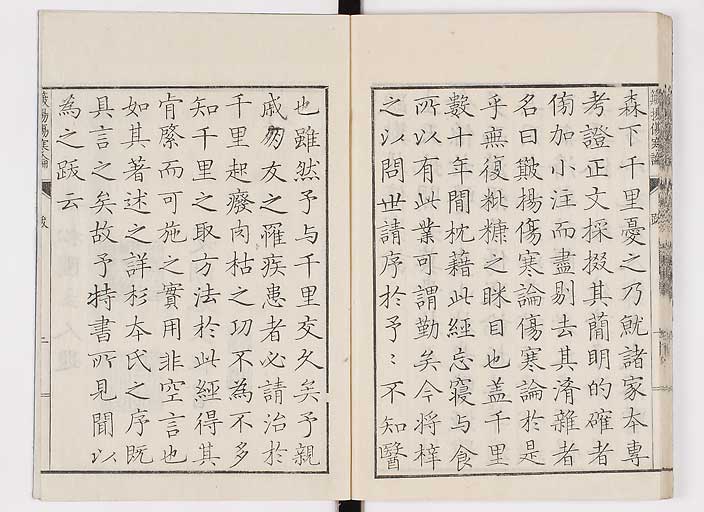 森下千里憂之乃就諸家本專
考證正文採掇其簡明的確者
傍加小注而盡剔去其淆雜者
名曰簸揚傷寒論傷寒論於是
乎無復秕糠之眯目也盖千里
數十年間枕藉此經忘寢与食
所以有此業可謂勤矣今将梓
之以問世請序於予〻不知醫
也雖然予与千里交久矣予親
戚朋友之罹疾患者必請治於
千里起癈肉枯之功不為不多
知千里之取方法於此經得其
肯綮而可施之實用非空言也
如其著述之詳杉本氏之序既
具言之矣故予特書所見聞以
為之跋云
簸揚傷寒論
跋
二